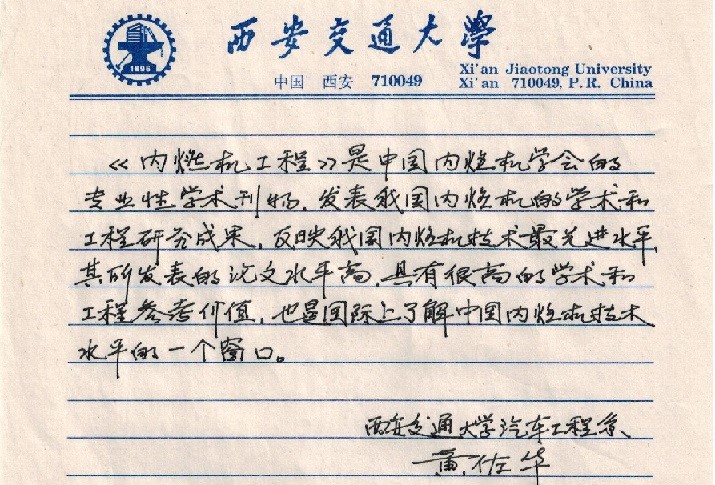 1896
西安交通大学
中国 西安 710049
Xi'an Jiaotong University
Xi'an 710049, P.R. China
《内燃机工程》是中国内燃机学会的
专业性学术刊物，发表我国内燃机的学术和
工程研究成果，反映我国内燃机技术最先进水平，
其所发表的论文水平高，具有很高的学术和
工程参考价值，也是国际上了解中国内燃机技术
水平的一个窗口。
西安交通大学汽车工程系、
黄佐华